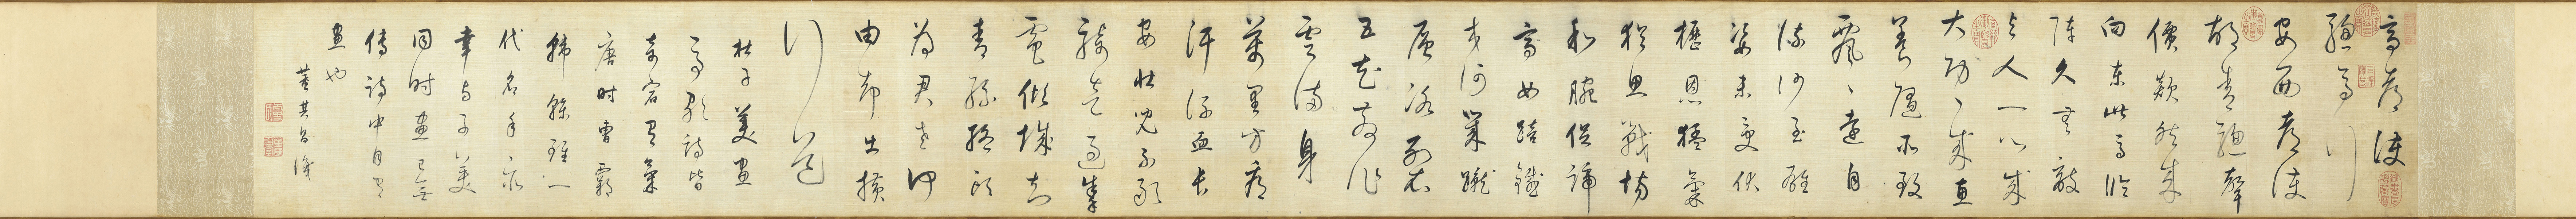 高都護
驄馬行
安西都護
胡青驄聲
價欻然來
向東此馬臨
陣久無敵
與人一心成
大功〻成惠
養隨所致
飄〻遠自
流沙至雄
姿未受伏
櫪恩猛氣
猶思戰場
利腕促蹄
高如踣鐵
交河幾蹴
層冰裂
五花散作
雲滿身
萬里方看
汗流血長
安壯兒不敢
騎走過掣
電傾城知
青絲絡頭
為君老何
由却出橫
門道
杜子美畫
馬歌詩皆
奇宕有氣
唐時曹霸
韓幹雖一
代名手
幸與子美
同時畫已無
傳詩中自有
畫也
董其昌識